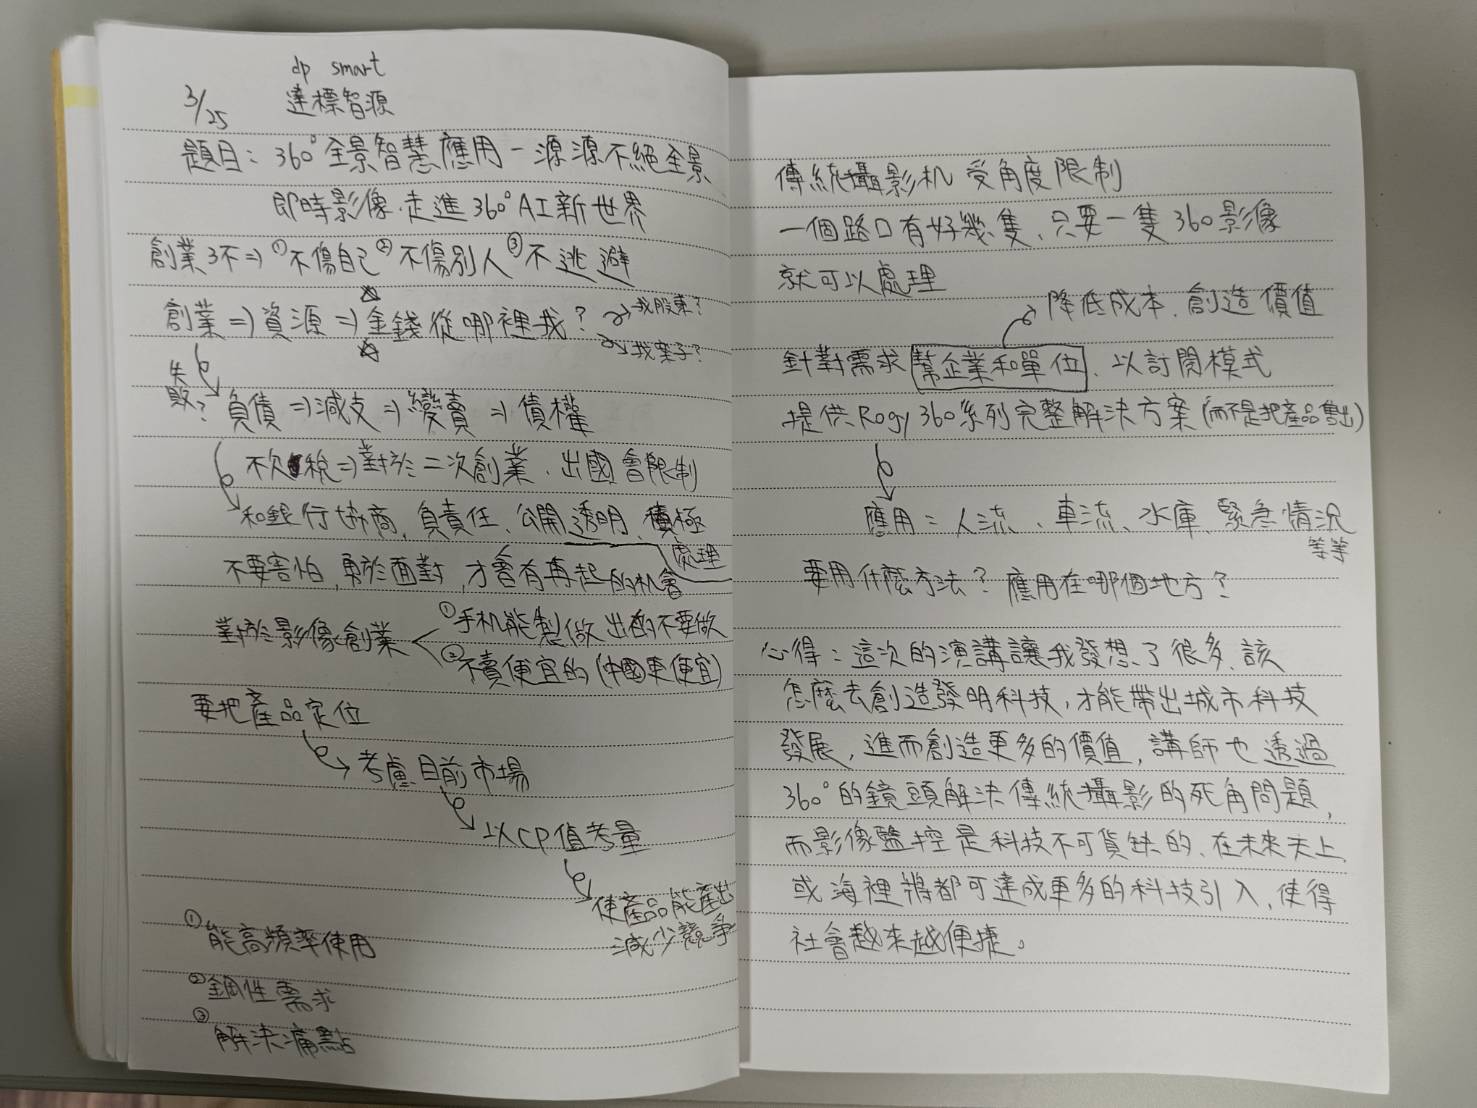 dp smart
3/25 達標智源
題目：360°全景智慧應用－源源不絕全景
即時影像.走進360°AI新世界
創業3不⇒①不傷自己②不傷別人③不逃避
創業⇒資源⇒金錢從哪裡找？
找股東？
找案子？
失敗？
負債⇒減支⇒變賣⇒債權
不欠稅⇒對於二次創業、出國會限制
和銀行協商、負責任、公開透明、積極
處理
不要害怕，勇於面對，才會有再起的机會
對於影像創業
①手机能製做出的不要做
②不賣便宜的(中國更便宜)
要把產品定位
考慮目前市場
以CP值考量
使產品能產出
減少競爭
①能高頻率使用
②鋼性需求
③解決痛點
傳統攝影机受角度限制
一個路口有好幾隻、只要一隻360影像
就可以處理
降低成本、創造價值
針對需求幫企業和單位、以訂閱模式
提供Rogy360系列完整解決方案(而不是把產品售出)
應用：人流、車流、水庫、緊急情況
等等
要用什麼方法？應用在哪個地方？
心得：這次的演講讓我發想了很多、該
怎麼去創造發明科技，才能帶出城市科技
發展，進而創造更多的價值，講師也透過
360°的鏡頭解決傳統攝影的死角問題，
而影像監控是科技不可貨缺的、在未來天上
或海裡將都可達成更多的科技引入，使得
社會越來越便捷。